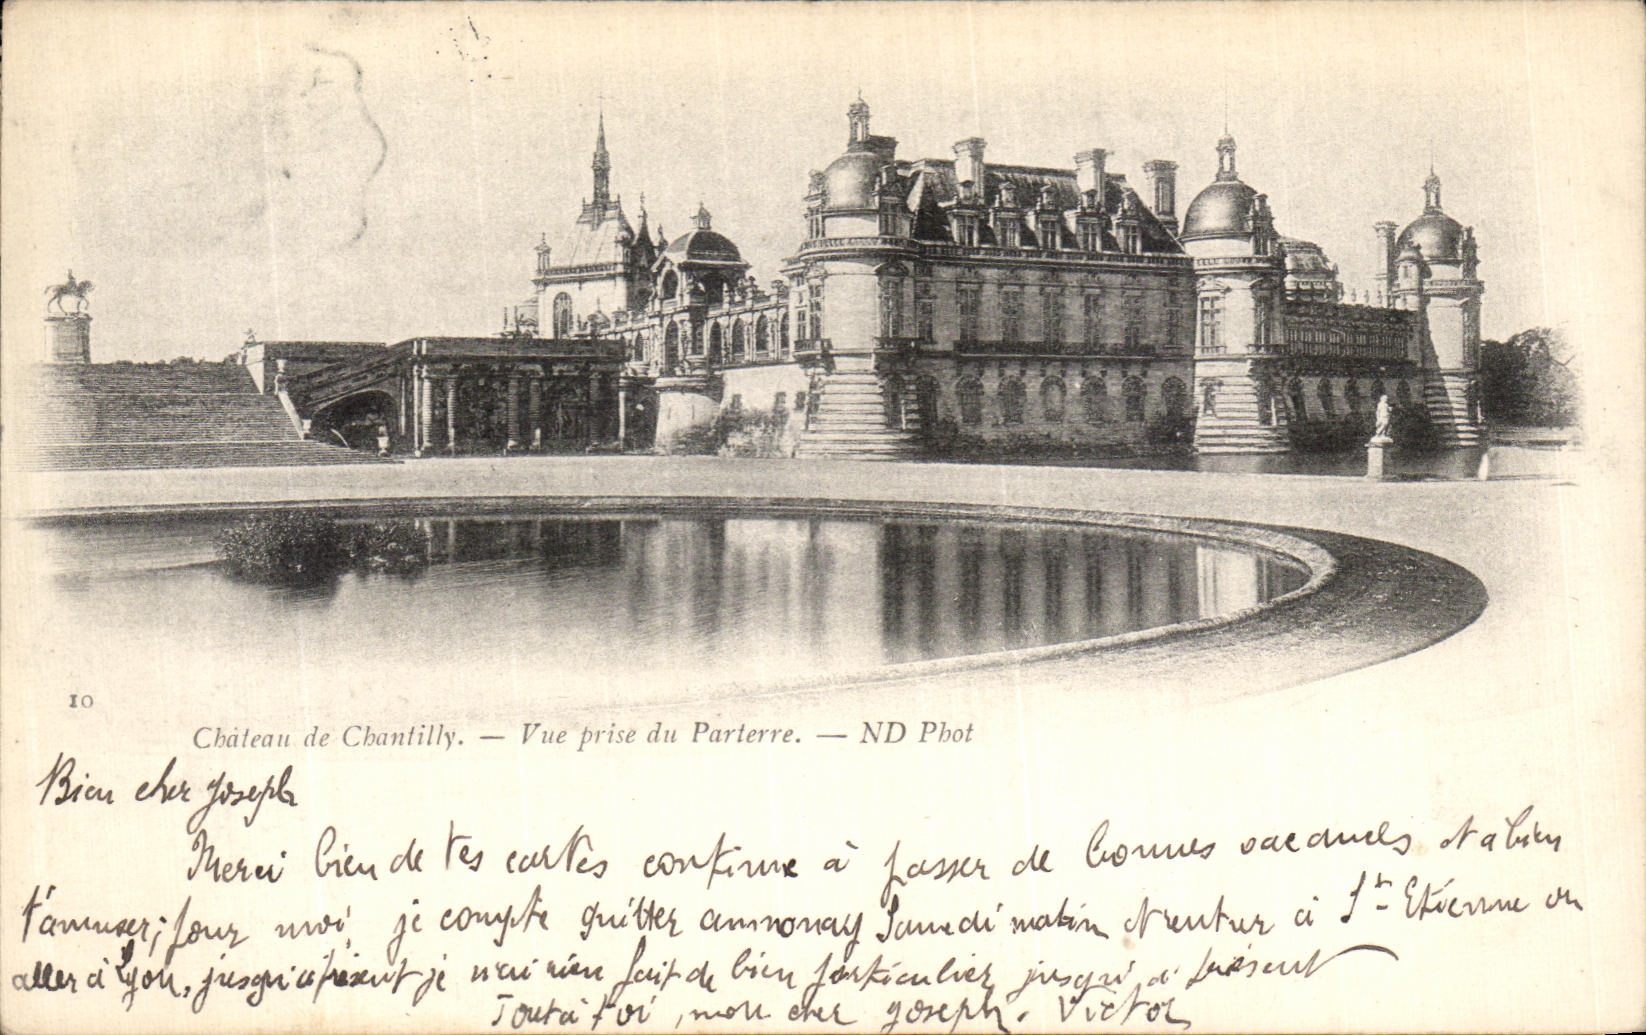 10
Château de Chantilly. — Vue prise du Parterre. — ND Phot
Bien cher Joseph
Merci bien de tes cartes continue à passer de bonnes vacances et à bien
t'amuser; pour moi je compte quitter annonay Samedi matin et rentrer à St Etienne ou
aller à Lyon, jusqu'à présent je n'ai rien fait de bien particulier jusqu'à présent
Tout à toi, mon cher Joseph. Victor